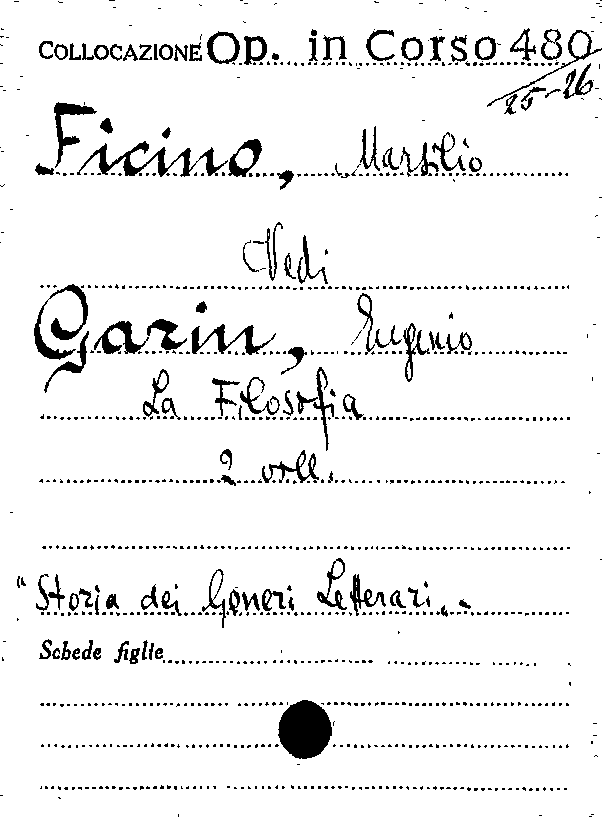 COLLOCAZIONE Op. in Corso 480
25-26
Ficino, Marsilio
Vedi
Garin, Eugenio
La Filosofia
2 voll.
"Storia dei Generi Letterari„.-
Schede figlie